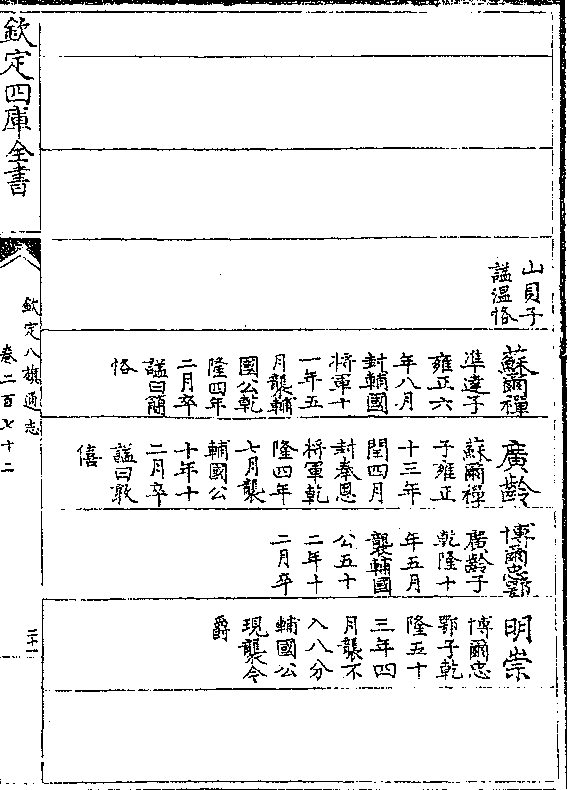 山貝子
諡溫恪
蘇爾禪
準達子
雍正六
年八月
封輔國
將軍十
一年五
月襲輔
國公乾
隆四年
二月卒
諡曰簡
恪
廣齡
蘇爾禪
子雍正
十三年
閏四月
封奉恩
將軍乾
隆四年
七月襲
輔國公
十年十
二月卒
諡曰敦
僖
博爾忠鄂
廣齡子
乾隆十
年五月
襲輔國
公五十
二年十
二月卒
明崇
博爾忠
鄂子乾
隆五十
三年四
月襲不
入八分
輔國公
現襲令
爵
欽定四庫全書
欽定八旗通志
卷二百七十二